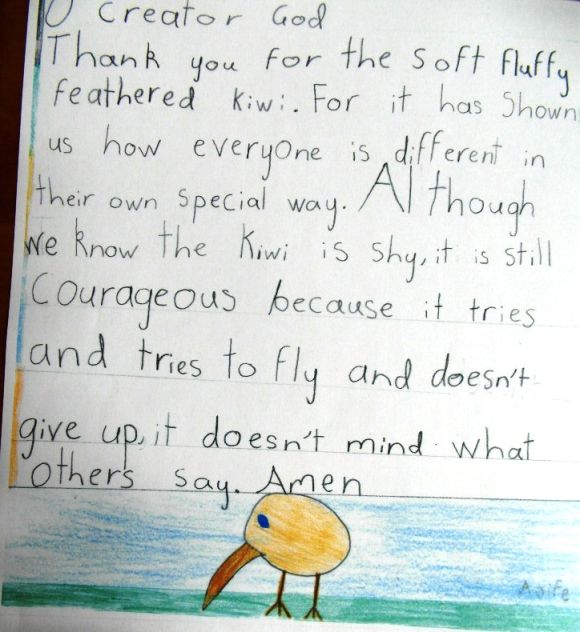 O Creator God
Thank you for the soft fluffy
feathered kiwi. For it has Shown
us how everyone is different in
their own special way. Although
we know the Kiwi is shy, it is still
Courageous because it tries
and tries to fly and doesn't
give up, it doesn't mind what
others say. Amen